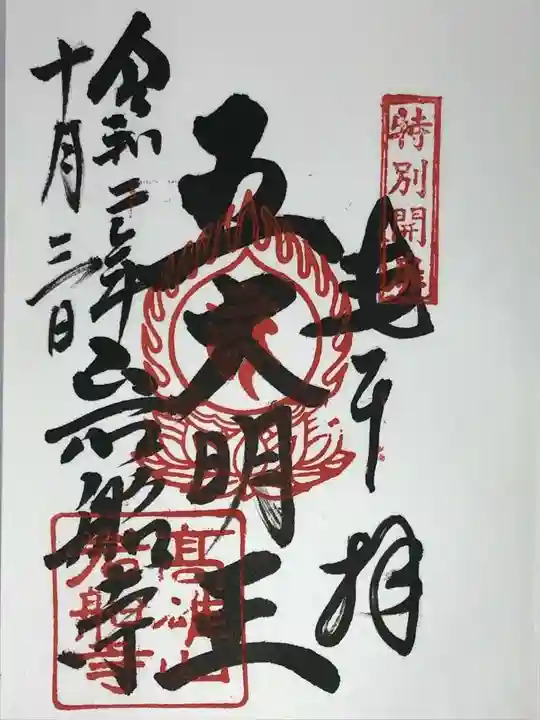 特別開扉
奉拝
五大明王
令和二年
十月三日
岩船寺
高雄山
岩船寺